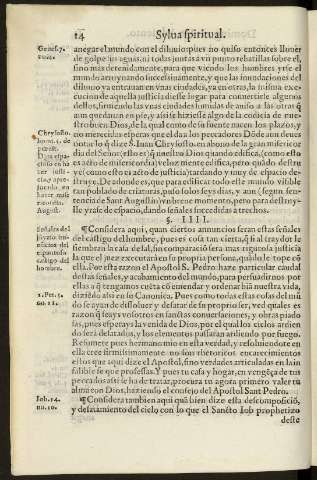 14
Sylua spiritual.
Genes. 7.
anegar el mundo con el diluuio: pues no quiso entonces llouer
de golpe sus aguas, ni todas juntas á vn punto rebatillas sobre el,
sino mas detenidamente, para que viẽdo los hombres yrse el
mundo arruynando successiuamente, y que las inundaciones del
diluuio ya entrauan en vnas ciudades, ya en otras, la misma exe-
cucion de aquella justicia diesse lugar para conuertirse algunos
dellos, siruiendo las vnas ciudades hundidas de auiso a las otras q̃
aun quedauan en pie, y assi se hiziesse algo de la codicia de nue-
stro bien. Dios, de la qual como de su fuente nacen los plazos, y
no merecidas esperas que el da a los peccadores. Dõde aun deueys
Chrysosto.
homi. 5. de
pœnit.
Dios espa-
cioso en ha
zer justi-
cia, y apre-
surado en
hazer mise
ricordia.
August.
notar lo q̃ dize S. Iuan Chrysosto. en abono de la gran misericor
dia del Señor: (esto es) q̃ nuestro Dios quando edifica, (como esto
es acto de misericordia) velozmente edifica, pero quãdo destru
ye (como esto es acto de justicia) tardando, y muy de espacio de
struye. De adonde es, que para edificar todo este mundo visible
tan poblado de criaturas, puso solos seys dias, y aun (segun sen-
tencia de Sant Augustin) vn breue momento, pero para destruy-
lle yrase de espacio, dando señales succedidas a trechos.
§. IIII.
Señales del
juyzio in-
dicios del
espantoso
castigo del
hombre.
¶Considera aqui, quan ciertos annuncios seran estas señales
del castigo del hombre, pues es cosa tan cierta, q̃ si al rayo del se
sembrara la cala de sal, sin comparaciõ sera mas rigurosa justicia
la que el juez executará en su propria persona, quãdo le tope cõ
ella. Por esta razon el Apostol S. Pedro haze particular caudal
destas señales, y acabamiento del mundo, para persuadirnos por
ellas a q̃ tengamos cuẽta cõ emendar y ordenar biẽ nuestra vida,
2. Pet. 3.
nu. 11.
diziẽdo assi en su Canonica. Pues como todas estas cosas del mũ
do se ayan de dissoluer y desatar de su propio ser, ved quales es
razon q̃ seays vosotros en sanctas conuersaciones, y obras piado
sas, pues esperays la venida de Dios, por el qual los cielos ardien
do serã desatados, y los elementos passarian ardiendo por fuego.
Resumete pues hermano mio en esta verdad, y resoluiendote en
ella cree firmissimamente no son rhetoricos encarecimientos
estos que aqui dize el Apostol, sino verdades articuladas en la in
falible fe que professas. Y pues tu casa y hogar, en vengẽça de tus
peccados assi se ha de tratar, procura tu agora primero valer tu
alma con Dios, haziendo el consejo del Apostol Sant Pedro.
Iob. 14.
nu. 10.
¶Considera tambien aqui quã bien dize esta descomposiciõ,
y desatamiento del cielo con lo que el Sancto Iob prophetizo
deste